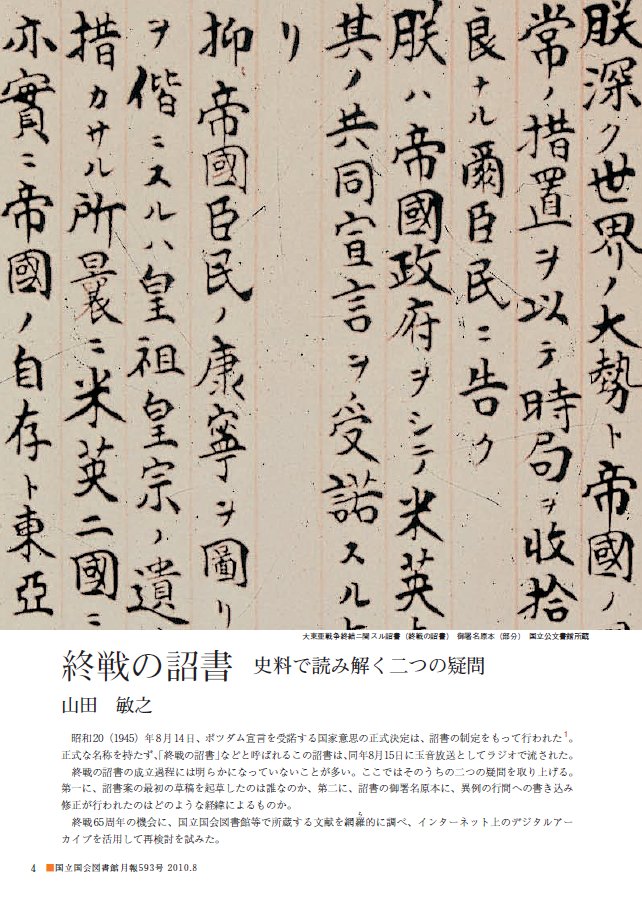 朕深ク世界ノ大勢ト帝國ノ
常ノ措置ヲ以テ時局ヲ收拾
良ナル爾臣民ニ告ク
朕ハ帝國政府ヲシテ米英
其ノ共同宣言ヲ受諾スル
リ
抑帝國臣民ノ康寧ヲ圖リ
ヲ偕ニスルハ皇祖皇宗ノ遺
措カサル所曩ニ米英二國ニ
亦實ニ帝國ノ自存ト東亞
大東亜戦争終結ニ関スル詔書（終戦の詔書） 御署名原本（部分） 国立公文書館所蔵
終戦の詔書 史料で読み解く二つの疑問
山田 敏之
昭和20（1945）年8月14日、ポツダム宣言を受諾する国家意思の正式決定は、詔書の制定をもって行われた1。
正式な名称を持たず、「終戦の詔書」などと呼ばれるこの詔書は、同年8月15日に玉音放送としてラジオで流された。
終戦の詔書の成立過程には明らかになっていないことが多い。ここではそのうちの二つの疑問を取り上げる。
第一に、詔書案の最初の草稿を起草したのは誰なのか、第二に、詔書の御署名原本に、異例の行間への書き込み
修正が行われたのはどのような経緯によるものか。
終戦65周年の機会に、国立国会図書館等で所蔵する文献を網羅的に調べ、インターネット上のデジタルアー
カイブを活用して再検討を試みた。
4 ■国立国会図書館月報593号 2010.8